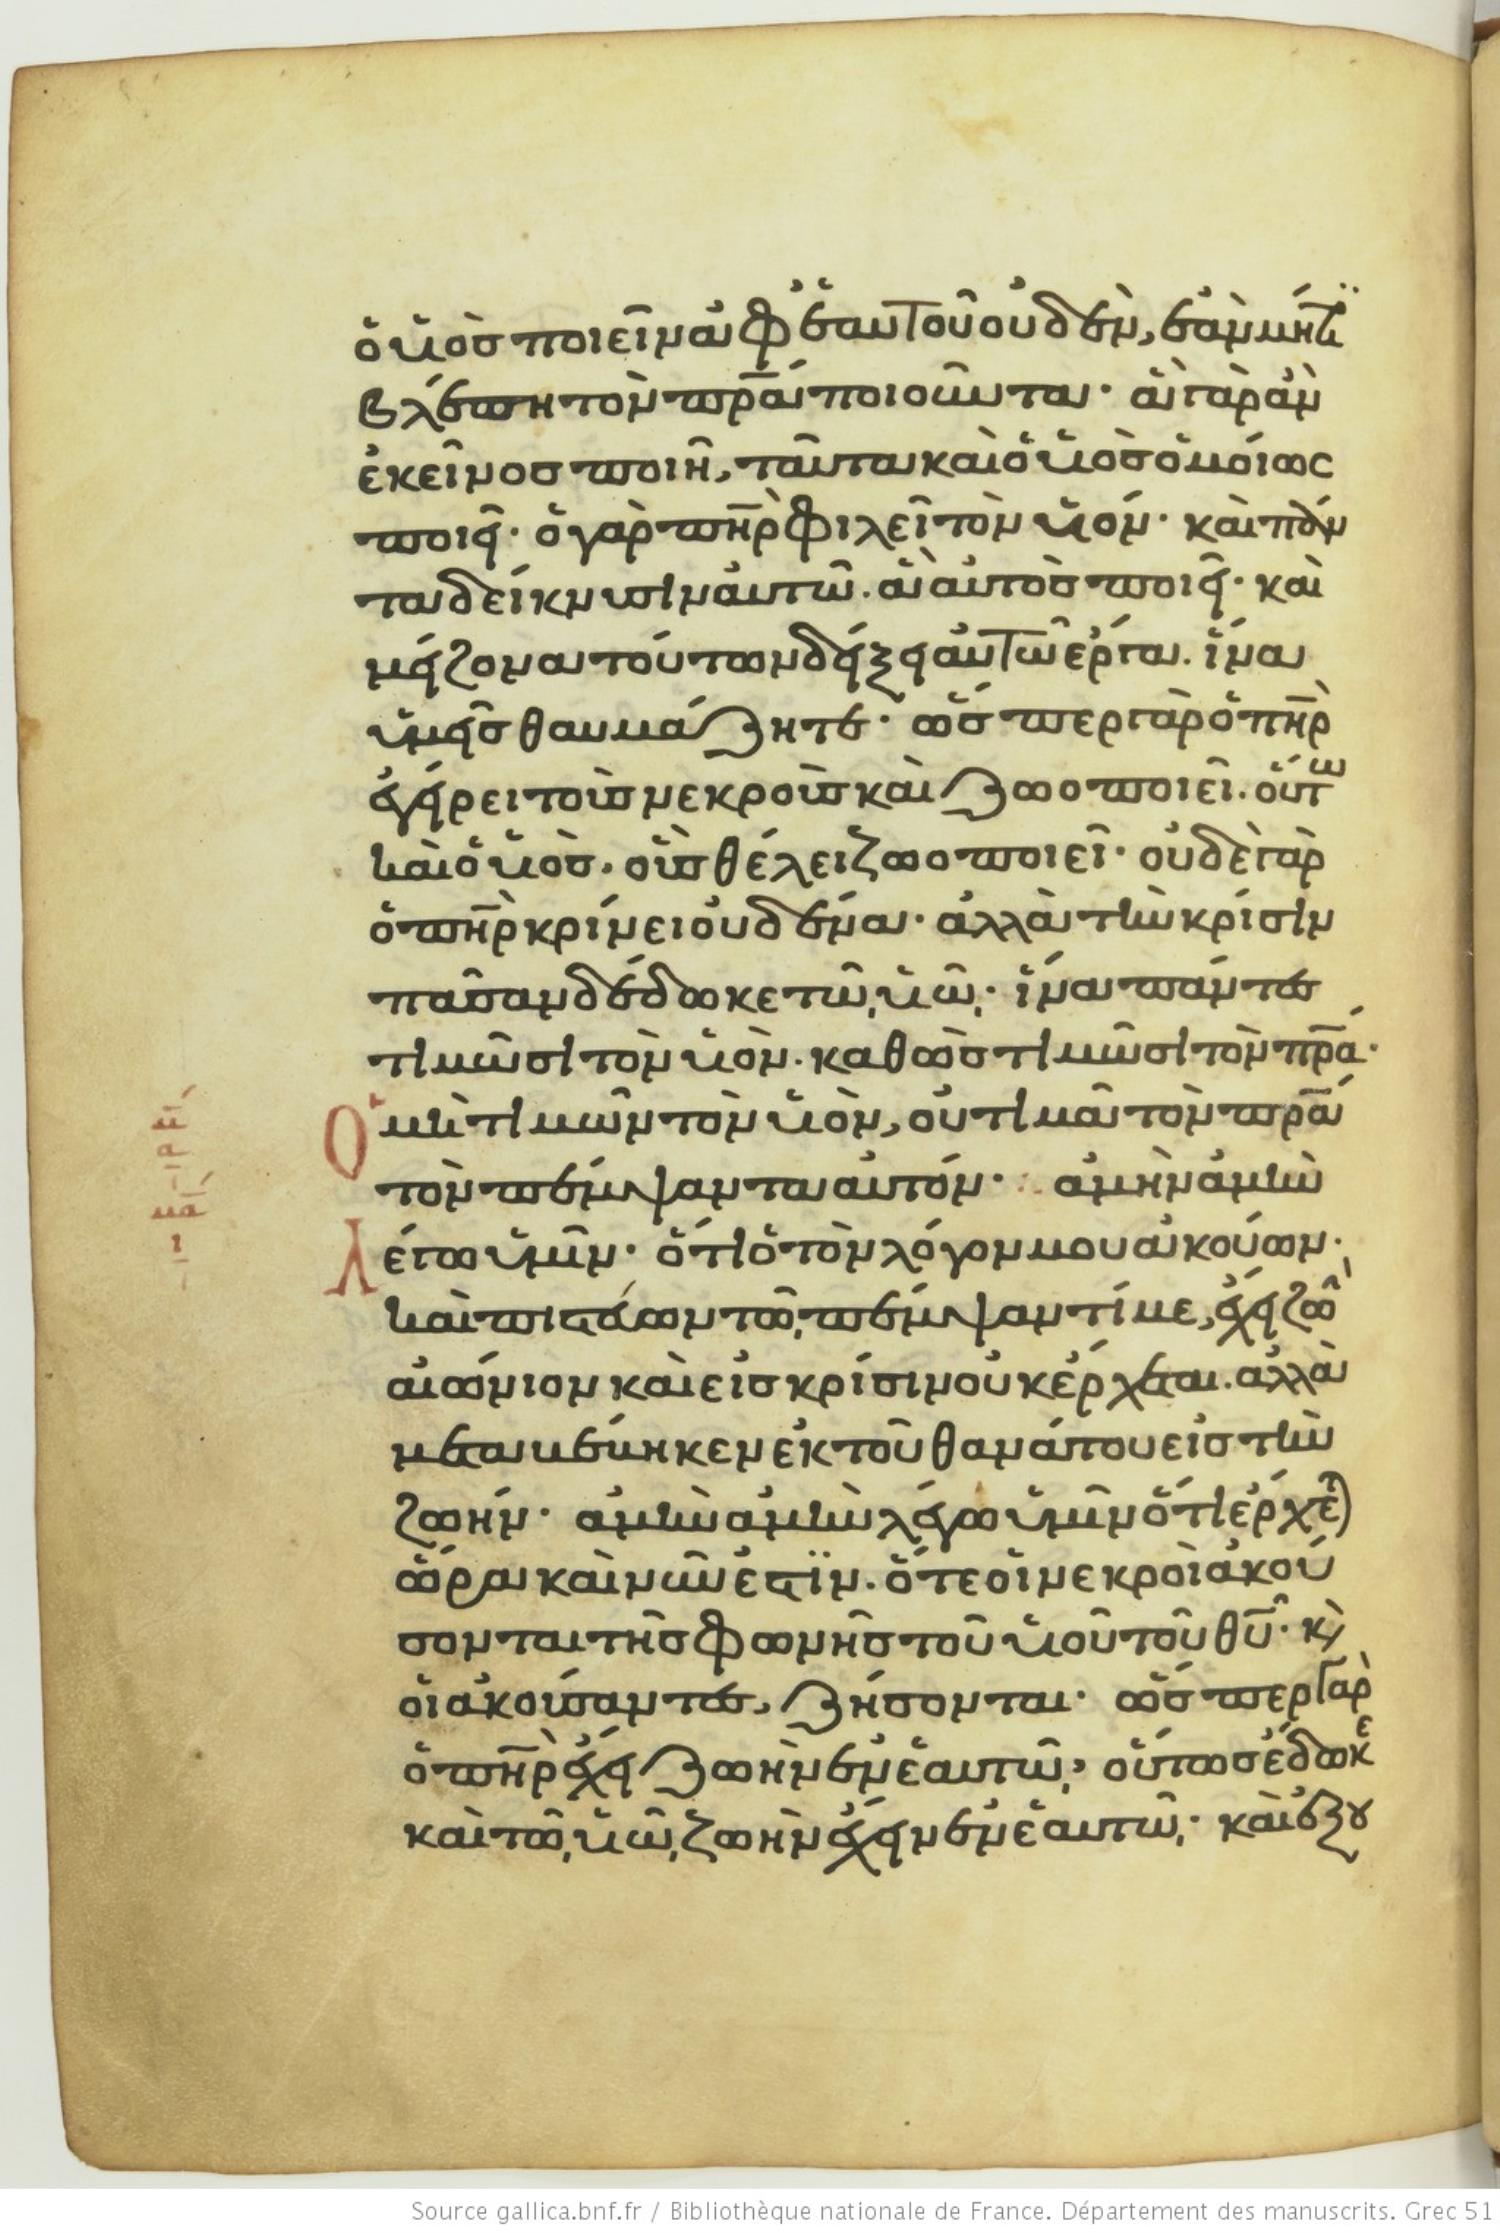 ὁ υἱὸσ ποιεῖν ἀφ ἑαυτοῦ οὐδὲν, ἐὰν μή τι
βλέπη τὸν πρ̅α ποιοῦντα· ἃ γὰρ ἂν
ἐκεῖνοσ ποιῆ, ταῦτα καὶ ὁ υἱὸσ ὁμοίως
ποιεῖ· ὁ γὰρ πη̅ρ φιλεῖ τὸν υἱόν· καὶ πάν
τα δείκνυσιν αὐτῶ. ἃ αὐτὸσ ποιεῖ· καὶ
μείζονα τούτων δείξει αὐτῶ ἔργα. ἵνα
ὑμεῖσ θαυμάζητε· ὥσπερ γὰρ ὁ πη̅ρ
ἐγείρει τοὺσ νεκροὺσ καὶ ζωοποιεῖ. οὕτω
καὶ ὁ υἱὸσ. οὓσ θέλει ζωοποιεῖ· οὐδὲ γὰρ
ὁ πη̅ρ κρίνει οὐδένα· ἀλλὰ τὴν κρίσιν
πᾶσαν δέδωκε τῶ υἱῶ· ἵνα πάντεσ
τιμῶσι τὸν υἱὸν. καθὼσ τιμῶσι τὸν πρ̅α·
Ὁ μὴ τιμῶν τὸν υἱὸν, οὐ τιμᾶ τὸν πρ̅α
τὸν πέμψαντα αὐτόν· ἀμὴν ἀμὴν
Λέγω ὑμῖν· ὅτι ὁ τὸν λόγον μου ἀκούων·
καὶ πιστεύων τῶ πέμψαντί με, ἔχει ζωὴ
αἰώνιον καὶ εἰσ κρίσιν οὐκ ἔρχεται. ἀλλὰ
μεταβέβηκεν ἐκ τοῦ θανάτου εἰσ τὴν
ζωήν· ἀμὴν ἀμὴν λέγω ὑμῖν ὅτι ἔρχετ
ὥρα καὶ νῦν ἐστϊν. ὅτε οἱ νεκροὶ ἀκού
σονται τῆσ φωνῆσ τοῦ υἱοῦ τοῦ θυ̅· κ
οἱ ἀκούσαντεσ, ζήσονται· ὥσπερ γὰρ
ὁ πη̅ρ ἔχει ζωὴν ἐν ἑαυτῶ· οὕτωσ ἔδωκε
καὶ τῶ υἱῶ ζωὴν ἔχειν ἐν ἑαυτῶ· καὶ ἐξου